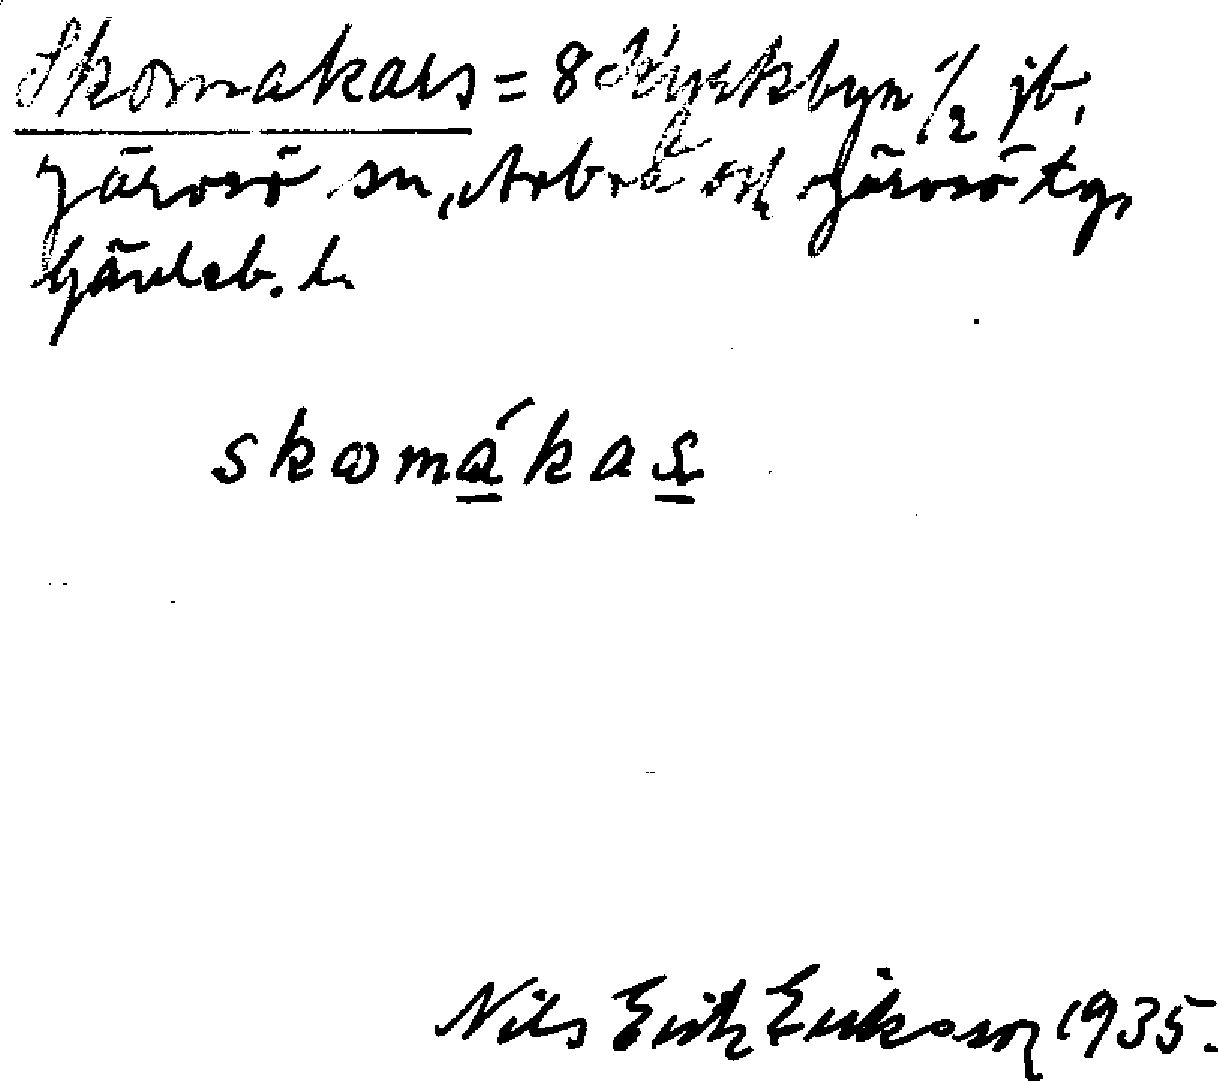 Skomakars = 8 Kyrkbyn 1/2 jb,
Järvsö sn, Arbrå och Järvsö tg,
Gävleb. l.
skomákas
Nils Erik Eriksson 1935.